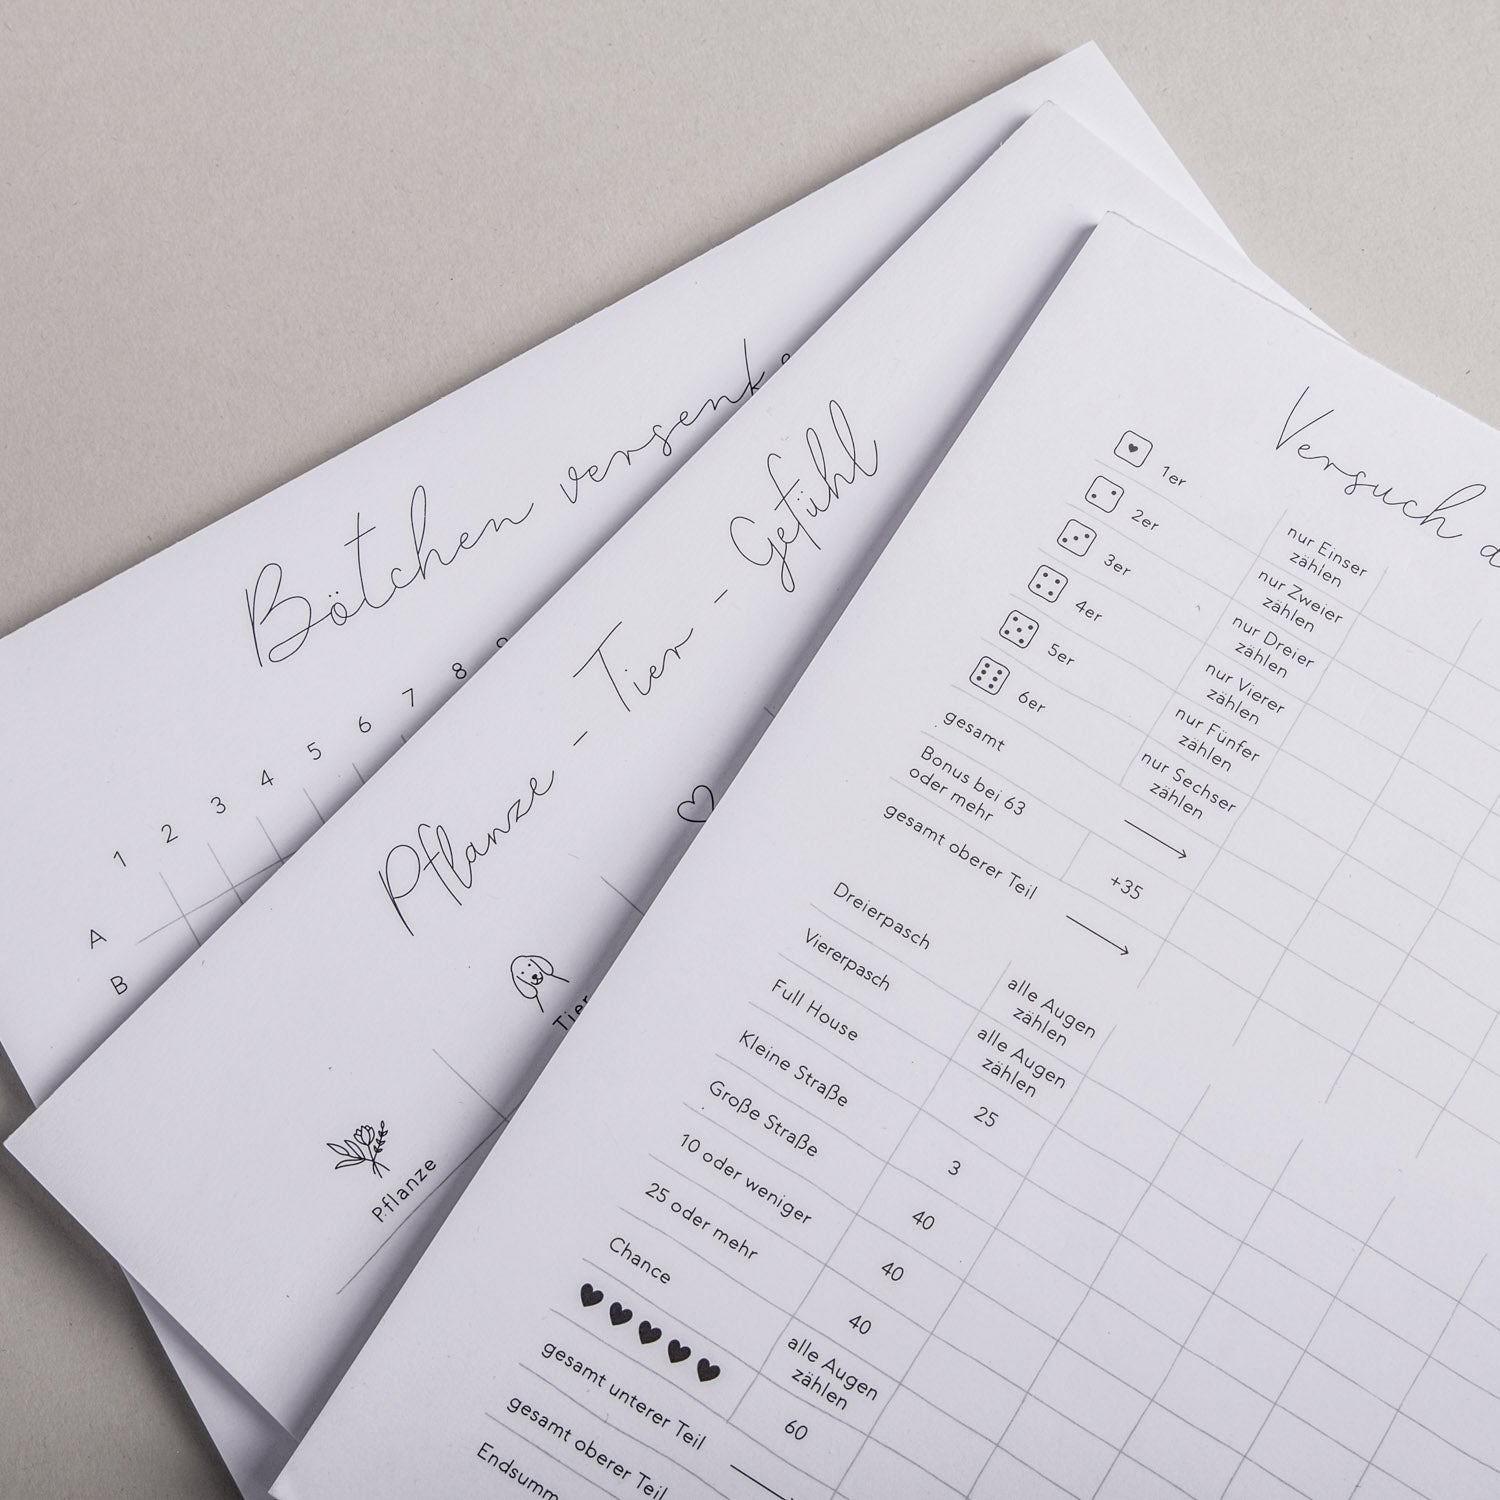 Bötchen versenk
1 2 3 4 5 6 7 8
A
B
Pflanze - Tier - Gefühl
Tier
Pflanze
Versuch
1er nur Einser zählen
2er nur Zweier zählen
3er nur Dreier zählen
4er nur Vierer zählen
5er nur Fünfer zählen
6er nur Sechser zählen
gesamt
Bonus bei 63
oder mehr +35
gesamt oberer Teil
Dreierpasch alle Augen zählen
Viererpasch alle Augen zählen
Full House 25
Kleine Straße 3
Große Straße 40
10 oder weniger 40
25 oder mehr 40
Chance alle Augen zählen
60
gesamt unterer Teil
gesamt oberer Teil
Endsumm